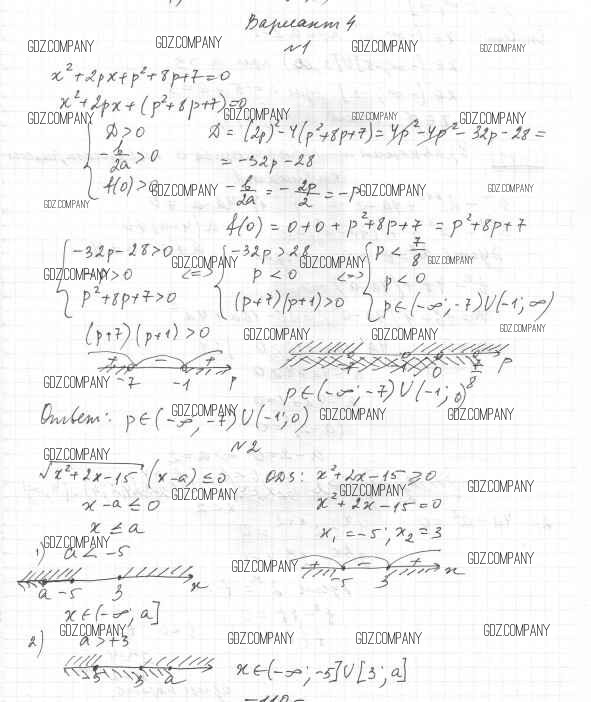 Вариант 4
GDZ.COMPANY GDZ.COMPANY GDZ.COMPANY GDZ.COMPANY
№1
x² + 2px + p² + 8p + 7 = 0
GDZ.COMPANY
x² + 2px + (p² + 8p + 7) = 0
GDZ.COMPANY GDZ.COMPANY GDZ.COMPANY GDZ.COMPANY
D > 0 D = (2p)² - 4(p² + 8p + 7) = 4p² - 4p² - 32p - 28 =
-b/2a > 0 = -32p - 28
f(0) > 0 -b/2a = -2p/2 = -p
GDZ.COMPANY GDZ.COMPANY GDZ.COMPANY
GDZ.COMPANY
f(0) = 0 + 0 + p² + 8p + 7 = p² + 8p + 7
-32p - 28 > 0 -32p > 28 p < 7/8
GDZ.COMPANY GDZ.COMPANY GDZ.COMPANY GDZ.COMPANY
-p > 0 <=> p < 0 <=> p < 0
p² + 8p + 7 > 0 (p+7)(p+1) > 0 p∈(-∞; -7)∪(-1; ∞)
GDZ.COMPANY
(p+7)(p+1) > 0 GDZ.COMPANY GDZ.COMPANY
+ - +
-7 -1 p
0 7/8 p
GDZ.COMPANY GDZ.COMPANY GDZ.COMPANY
p∈(-∞; -7)∪(-1; 0)
Ответ: p∈(-∞; -7)∪(-1; 0)
GDZ.COMPANY GDZ.COMPANY GDZ.COMPANY
№2
GDZ.COMPANY
√x² + 2x - 15 (x - a) ≤ 0 ОДЗ: x² + 2x - 15 ≥ 0
GDZ.COMPANY GDZ.COMPANY GDZ.COMPANY
x - a ≤ 0 x² + 2x - 15 = 0
x ≤ a x₁ = -5; x₂ = 3
GDZ.COMPANY
1) a < -5
GDZ.COMPANY GDZ.COMPANY
+ - +
a -5 3 x -5 3 x
x∈(-∞; a]
GDZ.COMPANY GDZ.COMPANY GDZ.COMPANY GDZ.COMPANY
2) a > +3
3 a x∈(-∞; -5]∪[3; a]